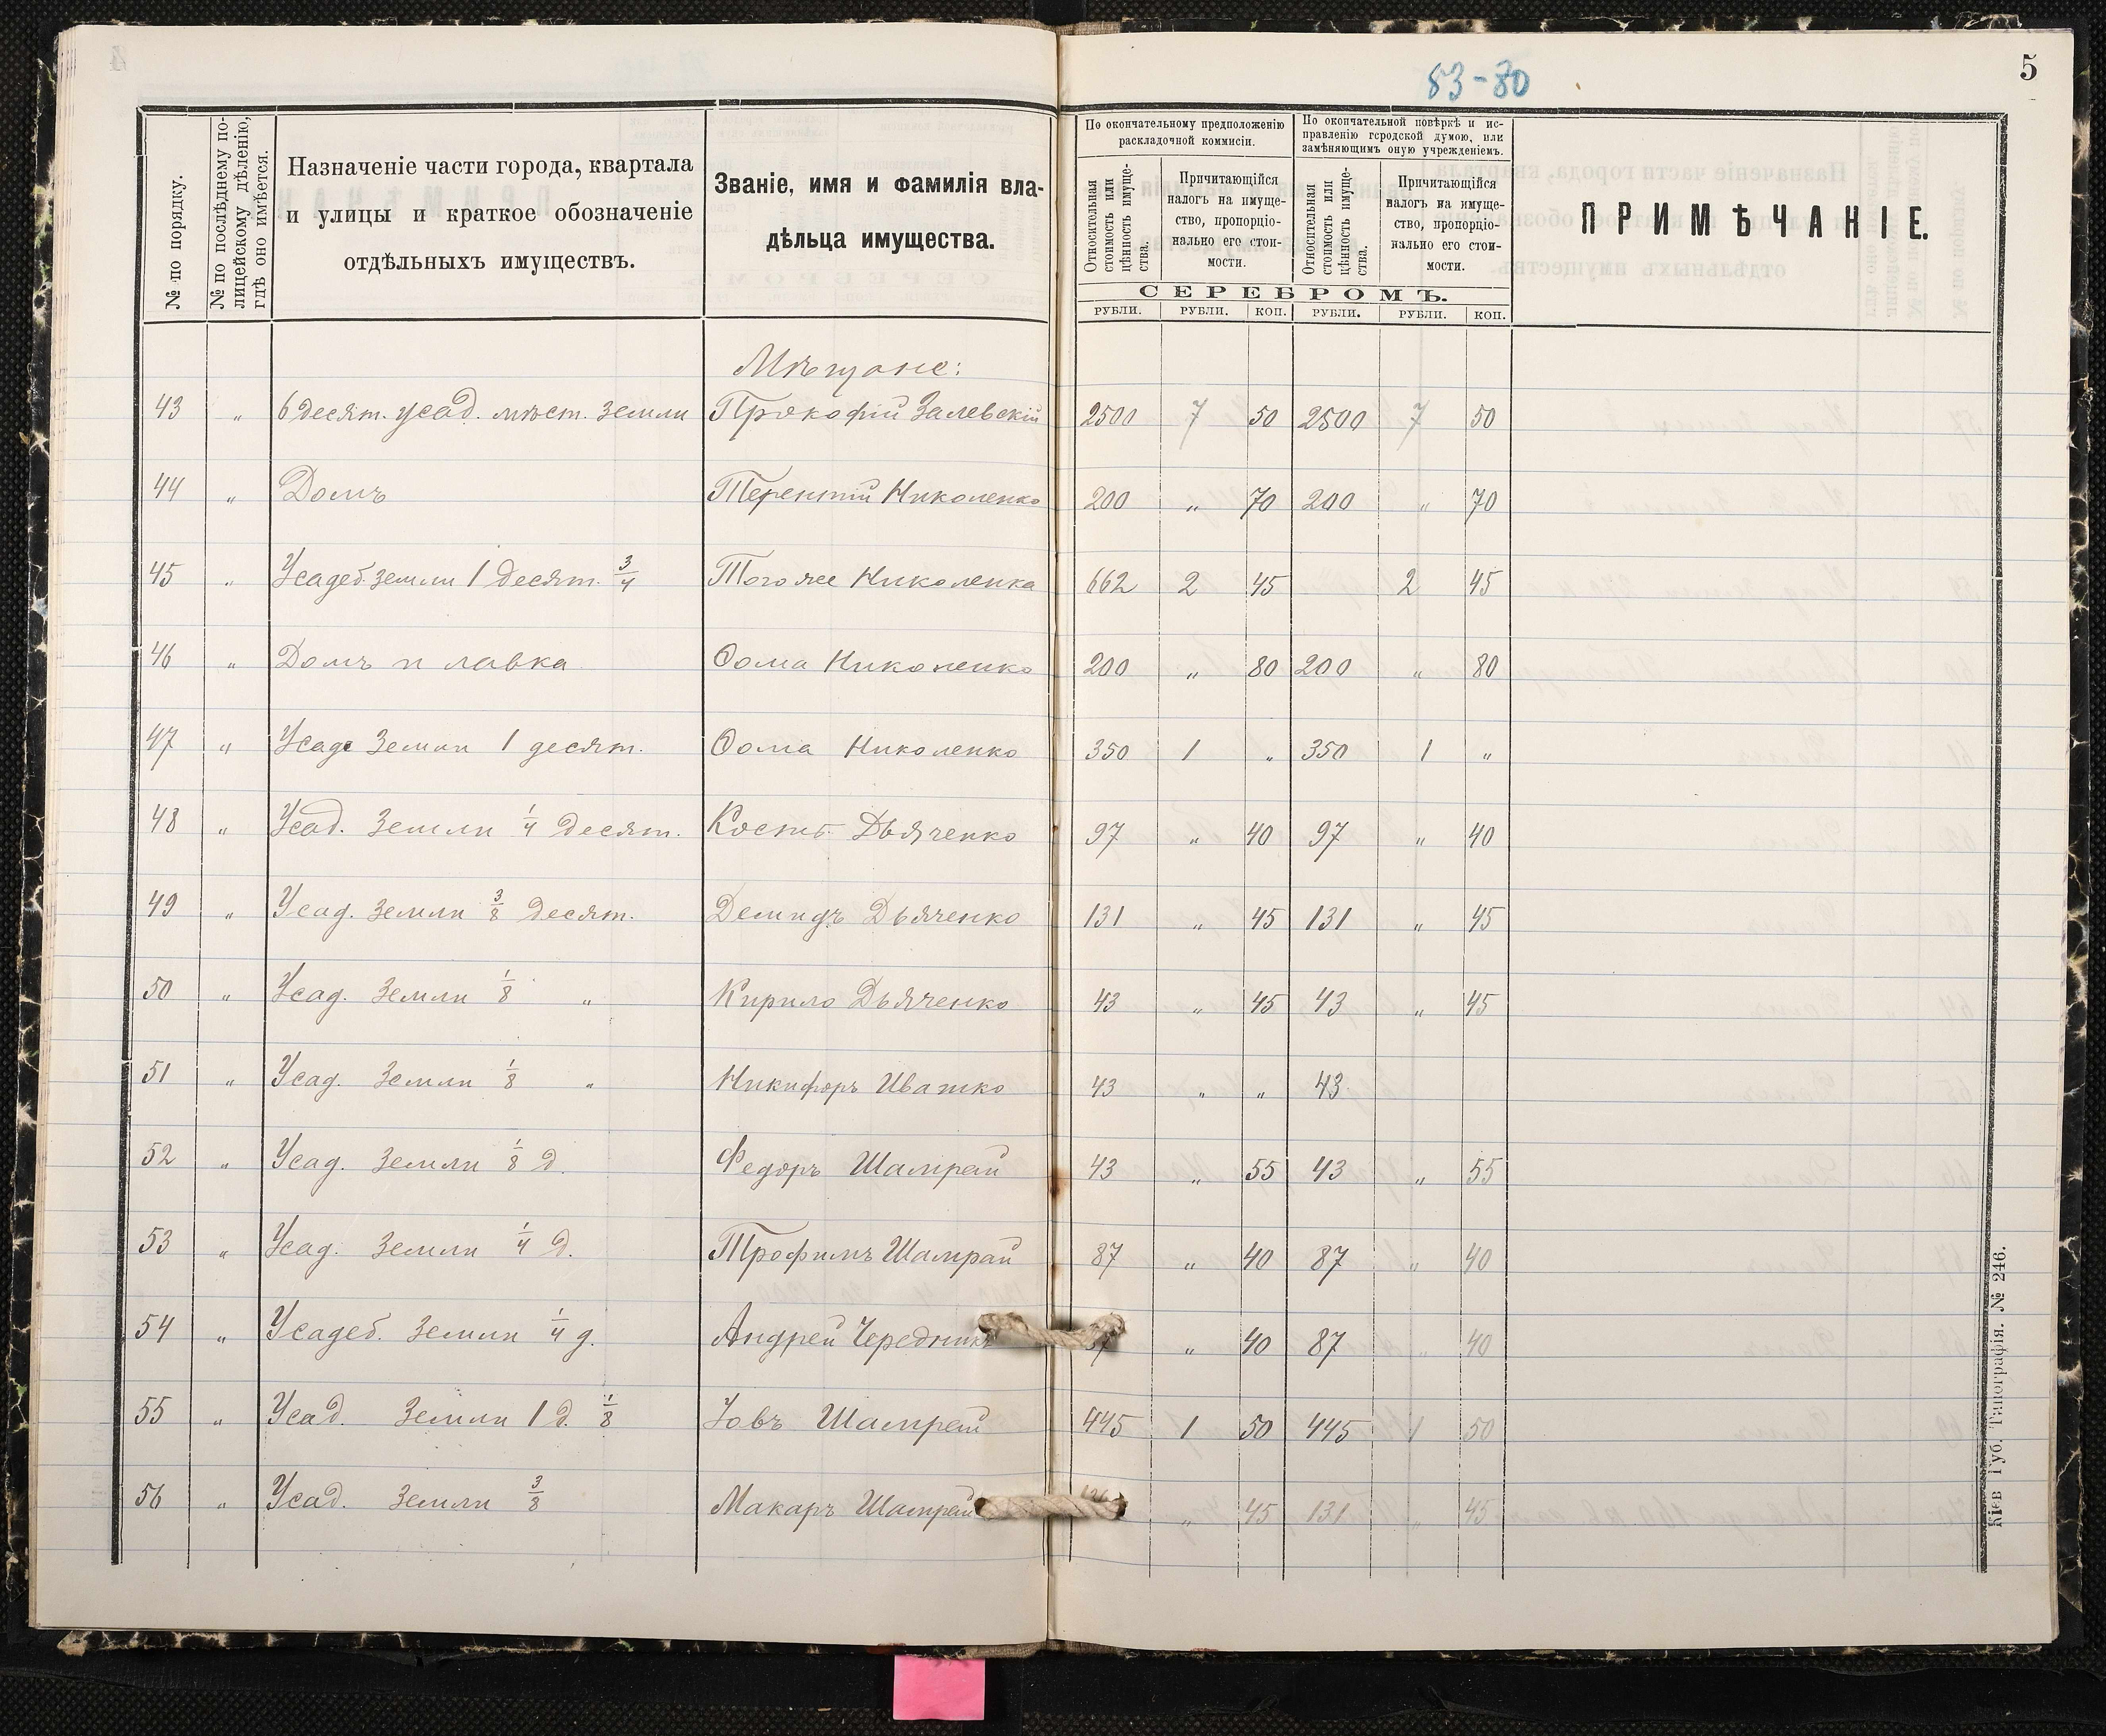 83-80
5
№ по порядку.
№ по послѣднему по-
лицейскому дѣленію,
гдѣ оно имѣется.
Назначеніе части города, квартала
и улицы и краткое обозначеніе
отдѣльныхъ имуществъ.
Званіе, имя и фамилія вла-
дѣльца имущества.
По окончательному предположенію
раскладочной коммисіи.
По окончательной повѣркѣ и ис-
правленію городской думою, или
замѣняющимъ оную учрежденіемъ.
Относительная
стоимость или
цѣнность имуще-
ства.
Причитающійся
налогъ на имуще-
ство, пропорціо-
нально его стои-
мости.
Относительная
стоимость или
цѣнность имуще-
ства.
Причитающійся
налогъ на имуще-
ство, пропорціо-
нально его стои-
мости.
ПРИМѢЧАНІЕ.
СЕРЕБРОМЪ.
РУБЛИ. РУБЛИ. КОП. РУБЛИ. РУБЛИ. КОП.
Мѣщане:
43 „ 6 десят. усад. мѣст. земли Прокофій Залевскій 2500 7 50 2500 7 50
44 „ Домъ Терентій Николенко 200 „ 70 200 „ 70
45 „ Усадеб. земли 1 десят. 3/4 Тогоже Николенка 662 2 45 2 45
46 „ Домъ и лавка Ѳома Николенко 200 „ 80 200 „ 80
47 „ Усаде земли 1 десят. Ѳома Николенко 350 1 „ 350 1 „
48 „ Усад. земли 1/4 десят. Дьяченко 97 „ 40 97 „ 40
49 „ Усад. земли 3/8 десят. Демидъ Дьяченко 131 „ 45 131 „ 45
50 „ Усад. земли 1/8 „ Кирило Дьяченко 43 „ 45 43 „ 45
51 „ Усад. земли 1/8 „ Никифоръ Ивашко 43 „ „ 43
52 „ Усад. земли 1/8 д. Федоръ Шамрай 43 „ 55 43 „ 55
53 „ Усад. земли 1/4 д. Трофимъ Шамрай 87 „ 40 87 „ 40
54 „ Усадеб. земли 1/4 д. Андрей 87 „ 40 87 „ 40
55 „ Усад. земли 1 д. 1/8 Іовъ Шамрай 445 1 50 445 1 50
56 „ Усад. земли 3/8 Макаръ Шамрай „ 45 131 „ 45
Кіев Губ. Типографія. № 246.